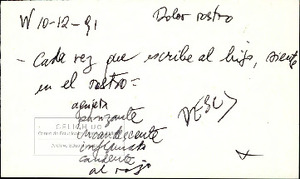 W 10-12-91
Dolor rostro
- Cada vez que escribe al hijo, siente
en el rostro =
agujeta
punzante
incandescente
candente
al rojo
DESC